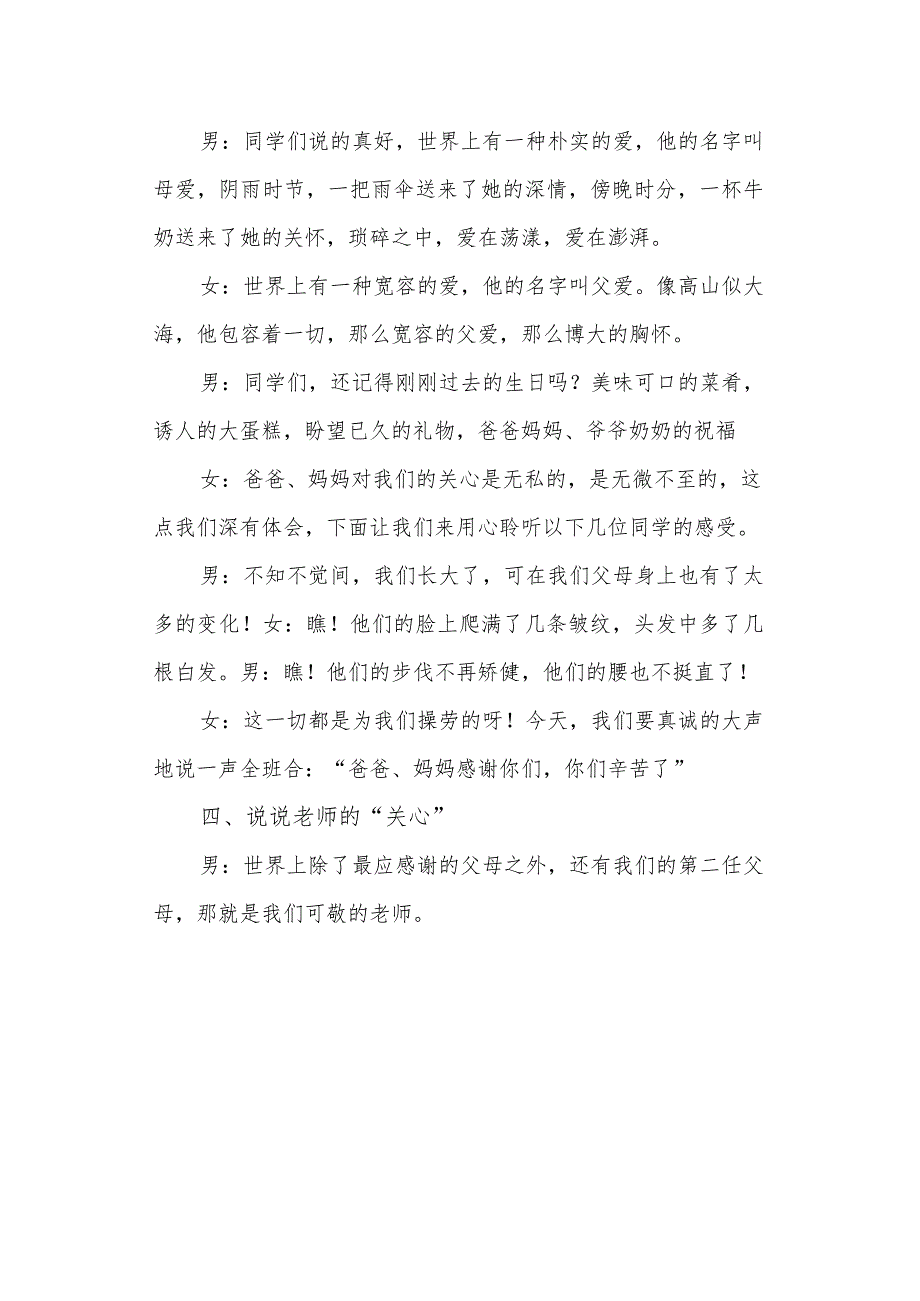 男：同学们说的真好，世界上有一种朴实的爱，他的名字叫
母爱，阴雨时节，一把雨伞送来了她的深情，傍晚时分，一杯牛
奶送来了她的关怀，琐碎之中，爱在荡漾，爱在澎湃。
女：世界上有一种宽容的爱，他的名字叫父爱。像高山似大
海，他包容着一切，那么宽容的父爱，那么博大的胸怀。
男：同学们，还记得刚刚过去的生日吗？美味可口的菜肴，
诱人的大蛋糕，盼望已久的礼物，爸爸妈妈、爷爷奶奶的祝福
女：爸爸、妈妈对我们的关心是无私的，是无微不至的，这
点我们深有体会，下面让我们来用心聆听以下几位同学的感受。
男：不知不觉间，我们长大了，可在我们父母身上也有了太
多的变化！女：瞧！他们的脸上爬满了几条皱纹，头发中多了几
根白发。男：瞧！他们的步伐不再矫健，他们的腰也不挺直了！
女：这一切都是为我们操劳的呀！今天，我们要真诚的大声
地说一声全班合：“爸爸、妈妈感谢你们，你们辛苦了”
四、说说老师的“关心”
男：世界上除了最应感谢的父母之外，还有我们的第二任父
母，那就是我们可敬的老师。